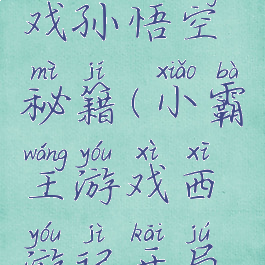 戏孙悟空
mì jí xiǎo bà
秘籍(小霸
wáng yóu xì xī
王游戏西
yóu jì kāi jú
游记开局